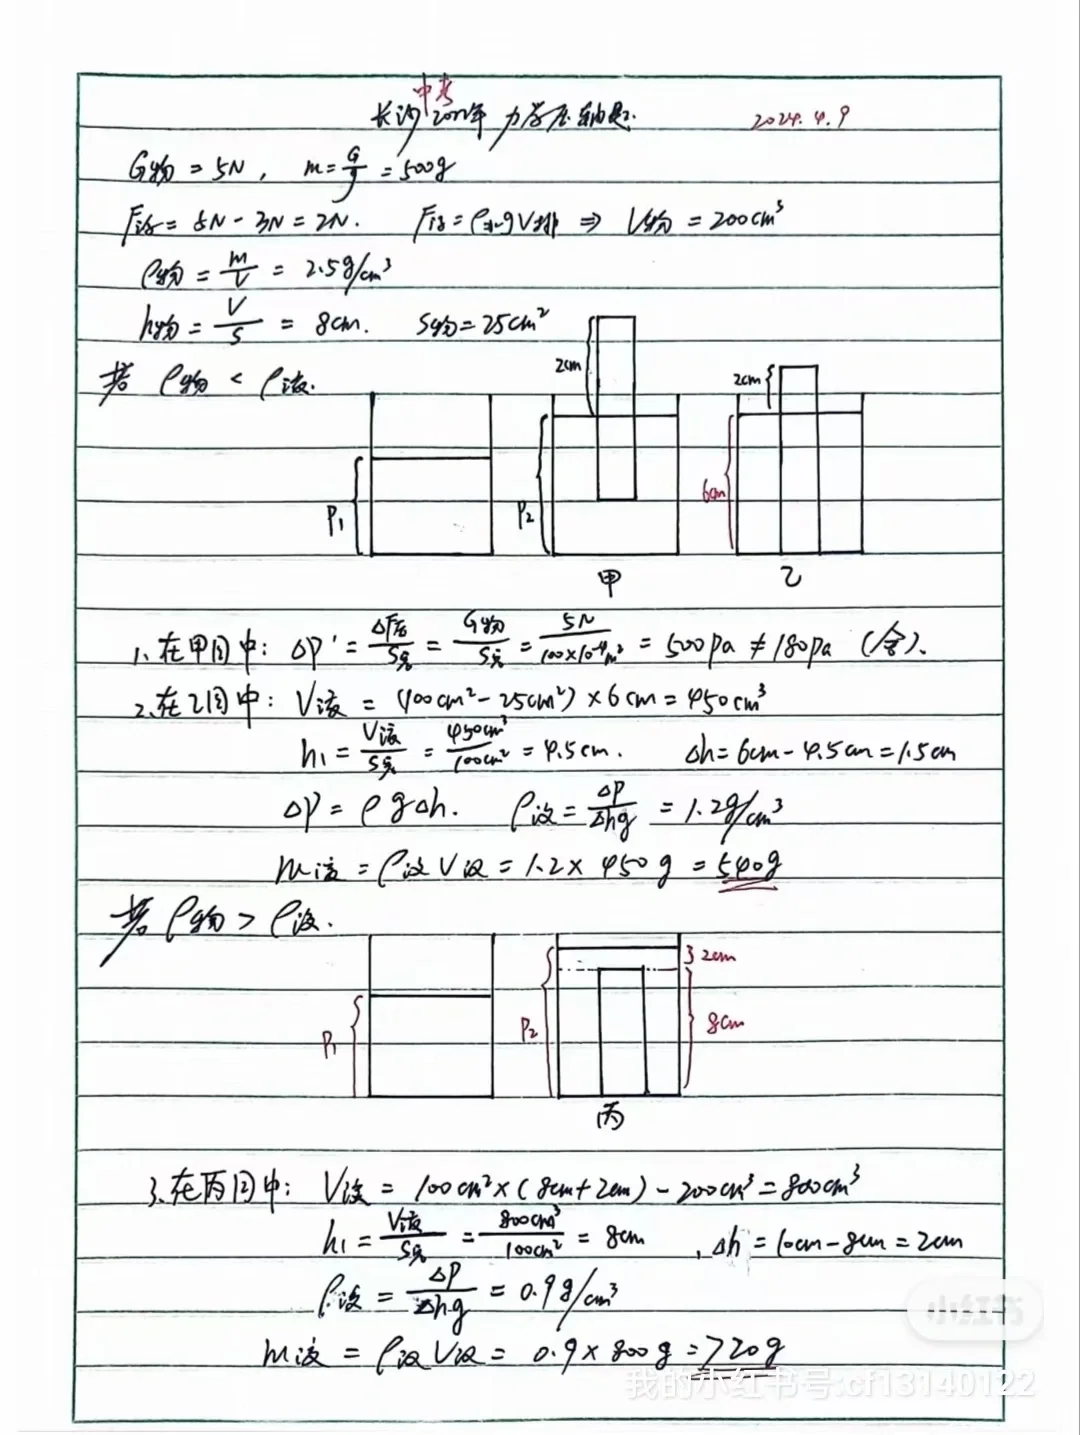 中考
长沙2022年 力学压轴题. 2024.4.9
G物 = 5N, m = G/g = 500g
F浮 = 5N - 3N = 2N. F浮 = ρ水gV排 ⇒ V物 = 200cm³
ρ物 = m/V = 2.5g/cm³
h物 = V/S = 8cm. S物 = 25cm²
若 ρ物 < ρ液.
2cm 2cm
P₁ P₂ 6cm
甲 乙
1. 在甲图中: ΔP' = ΔF压/S容 = G物/S容 = 5N/100×10⁻⁴m² = 500pa ≠ 180pa (舍).
2. 在乙图中: V液 = (100cm² - 25cm²) × 6cm = 450cm³
h₁ = V液/S容 = 450cm³/100cm² = 4.5cm. Δh = 6cm - 4.5cm = 1.5cm
ΔP = ρgΔh. ρ液 = ΔP/Δhg = 1.2g/cm³
m液 = ρ液V液 = 1.2 × 450g = 540g
若 ρ物 > ρ液.
2cm
P₁ P₂ 8cm
丙
3. 在丙图中: V液 = 100cm² × (8cm + 2cm) - 200cm³ = 800cm³
h₁ = V液/S容 = 800cm³/100cm² = 8cm, Δh = 10cm - 8cm = 2cm
ρ液 = ΔP/Δhg = 0.9g/cm³
m液 = ρ液V液 = 0.9 × 800g = 720g
小红书
我的小红书号:cf13140122